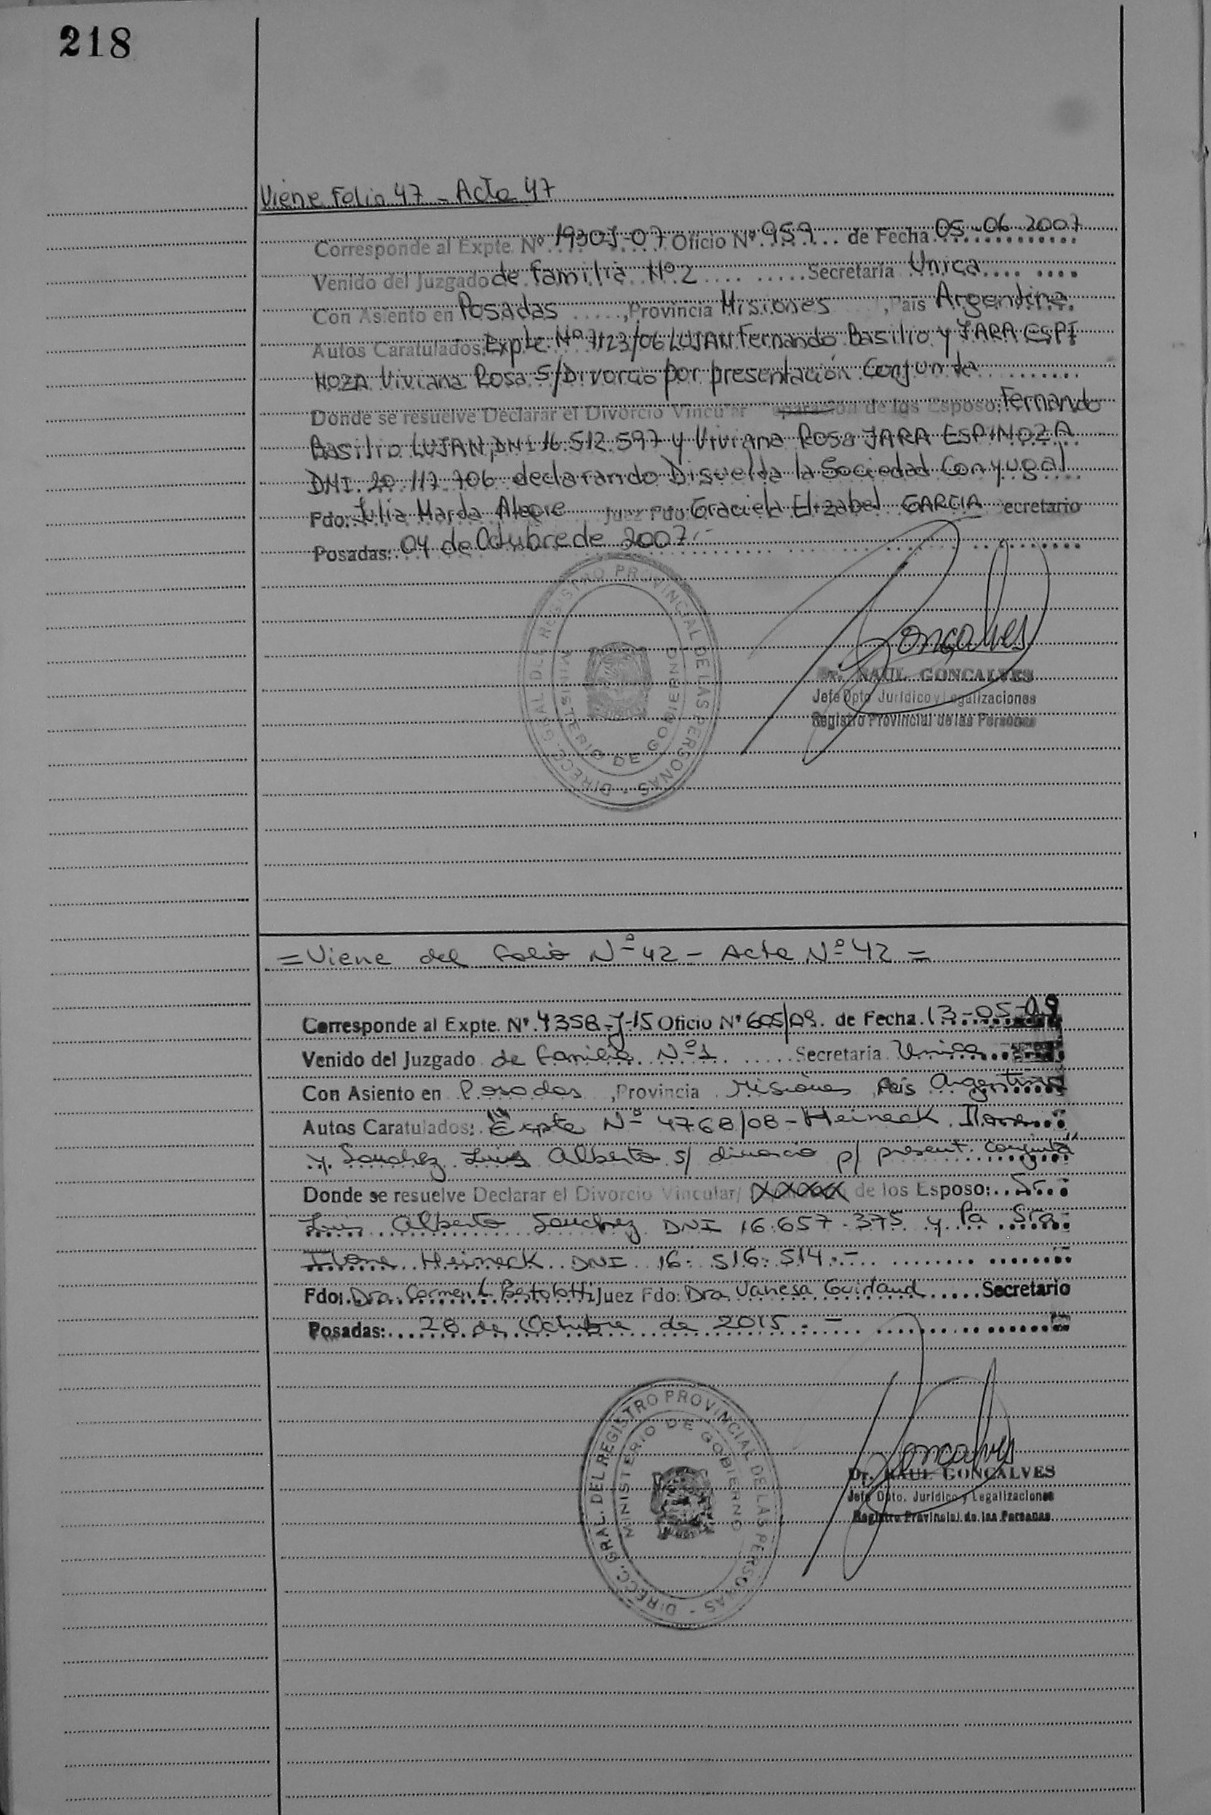 218
Viene Folio 47 - Acta 47
Corresponde al Expte. Nº 1930-J-07 Oficio Nº 959 de Fecha 05-06-2007
Venido del Juzgado de Familia Nº 2 Secretaria Unica
Con Asiento en Posadas, Provincia Misiones, Pais Argentina
Autos Caratulados: Expte Nº 7123/06 LUJAN Fernando Basilio y JARA ESPI
NOZA Viviana Rosa S/Divorcio por presentación Conjunta
Donde se resuelve Declarar el Divorcio Vincular de los Esposo: Fernando
Basilio LUJAN, DNI 16.512.597 y Viviana Rosa JARA ESPINOZA
DNI. 20.117.706 declarando Disuelta la Sociedad Conyugal
Fdo: Julia Marta Alegre Juez Fdo: Graciela Elizabet GARCIA ecretario
Posadas: 04 de Octubre de 2007.-
DIRECC. GRAL. DEL REGISTRO PROVINCIAL DE LAS PERSONAS
MINISTERIO DE GOBIERNO
Gonçalves
Dr. RAUL GONÇALVES
Jefe Dpto. Jurídico y Legalizaciones
Registro Provincial de las Personas
= Viene del Folio Nº 42 - Acta Nº 42 =
Corresponde al Expte. Nº 4358-J-15 Oficio Nº 605/09. de Fecha 13-05-09
Venido del Juzgado de Familia Nº 1 Secretaria Unica
Con Asiento en Posadas, Provincia Misiones Pais Argentina
Autos Caratulados: "Expte Nº 4768/08 - Heineck Ilone
y Sanchez Luis Alberto s/ divorcio p/ present. conjunta"
Donde se resuelve Declarar el Divorcio Vincular/ XXXXX de los Esposo: Sr.
Luis Alberto Sanchez DNI 16.657.375 y la Sra.
Ilone Heineck DNI 16.516.514.-
Fdo: Dra. Carmen L. Bertolotti Juez Fdo: Dra. Vanesa Guirlaud Secretario
Posadas: 28 de Octubre de 2015.-
DIRECC. GRAL. DEL REGISTRO PROVINCIAL DE LAS PERSONAS
MINISTERIO DE GOBIERNO
Goncalves
Dr. RAUL GONCALVES
Jefe Dpto. Jurídico y Legalizaciones
Registro Provincial de las Personas